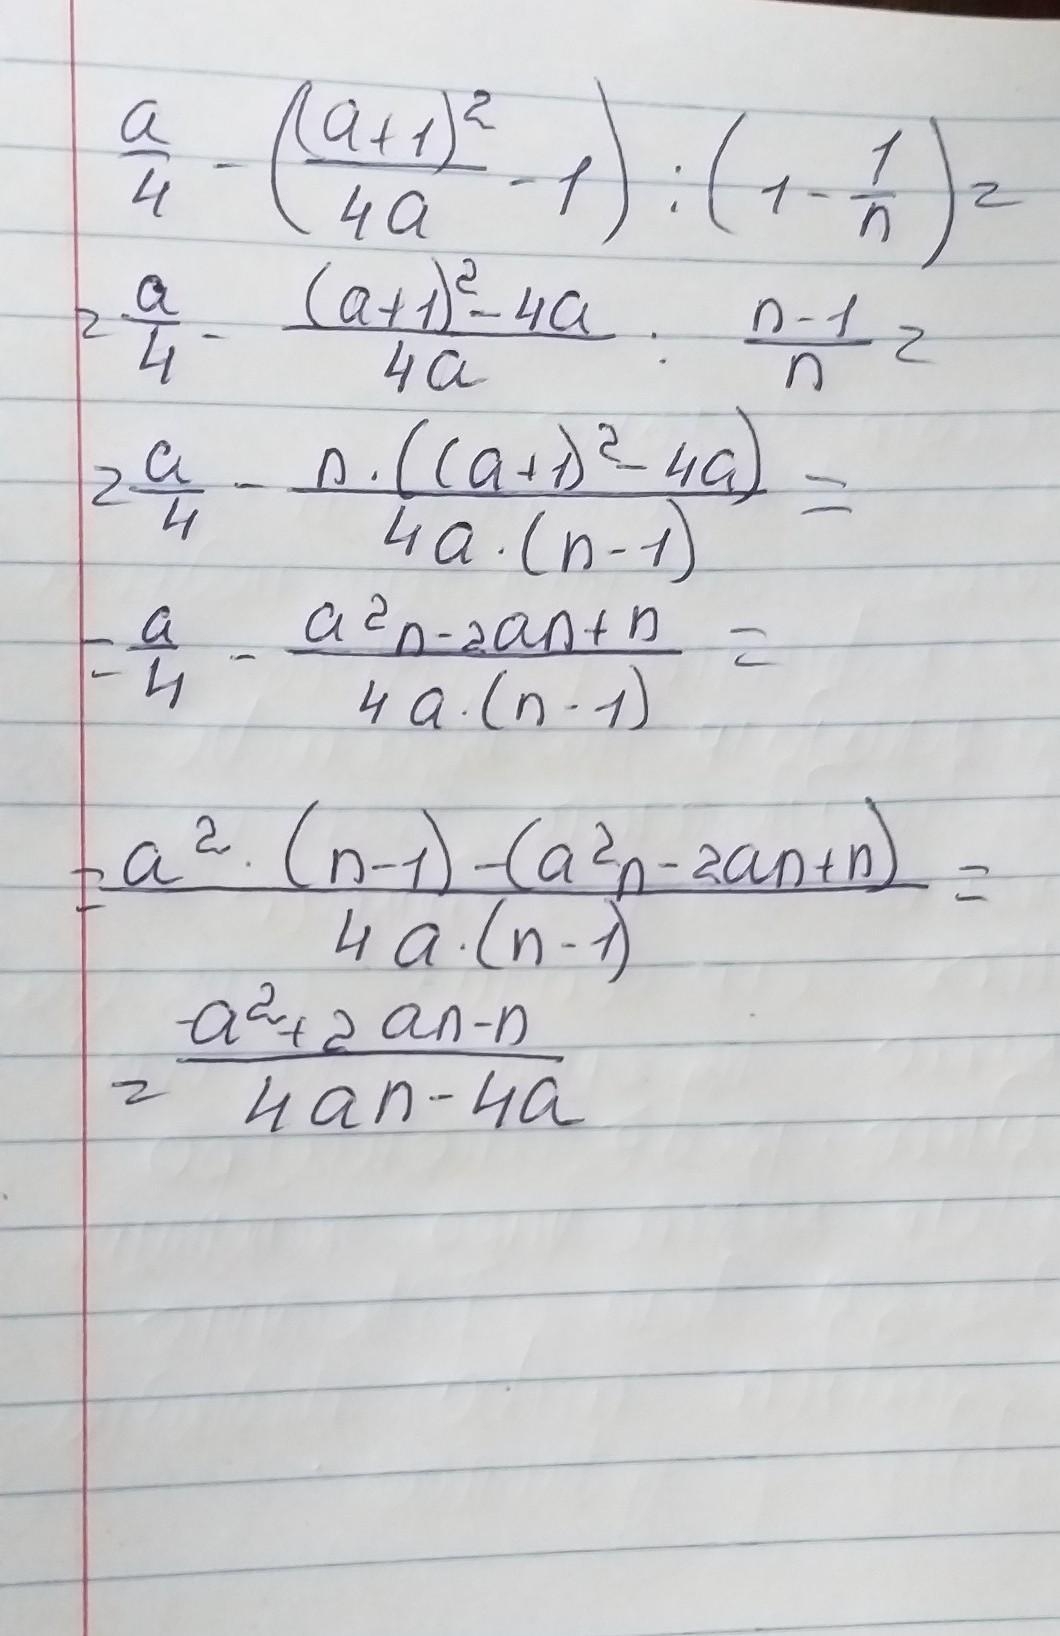 a/4 - ((a+1)²/4a - 1) : (1 - 1/n) =
= a/4 - ((a+1)² - 4a)/4a : (n-1)/n =
= a/4 - n·((a+1)² - 4a)/4a·(n-1) =
= a/4 - (a²n - 2an + n)/4a·(n-1) =
= (a²·(n-1) - (a²n - 2an + n))/4a·(n-1) =
= (-a² + 2an - n)/(4an - 4a)